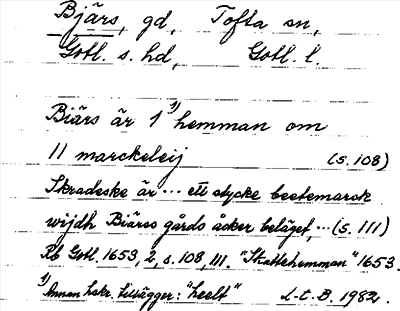 Bjärs, gd, Tofta sn,
Gotl. s. hd, Gotl. l.
Biärs är 1 ¹⁾ hemman om
11 marckeleij (s. 108)
Skradeske är ... ett stycke beetemarck
wijdh Biärss gårds åcker beläget, ... (s. 111)
Rb Gotl. 1653, 2, s. 108, 111. "Skattehemman" 1653.
¹⁾ Annan hakr. tillägger: "heelt" L-t. B. 1982.